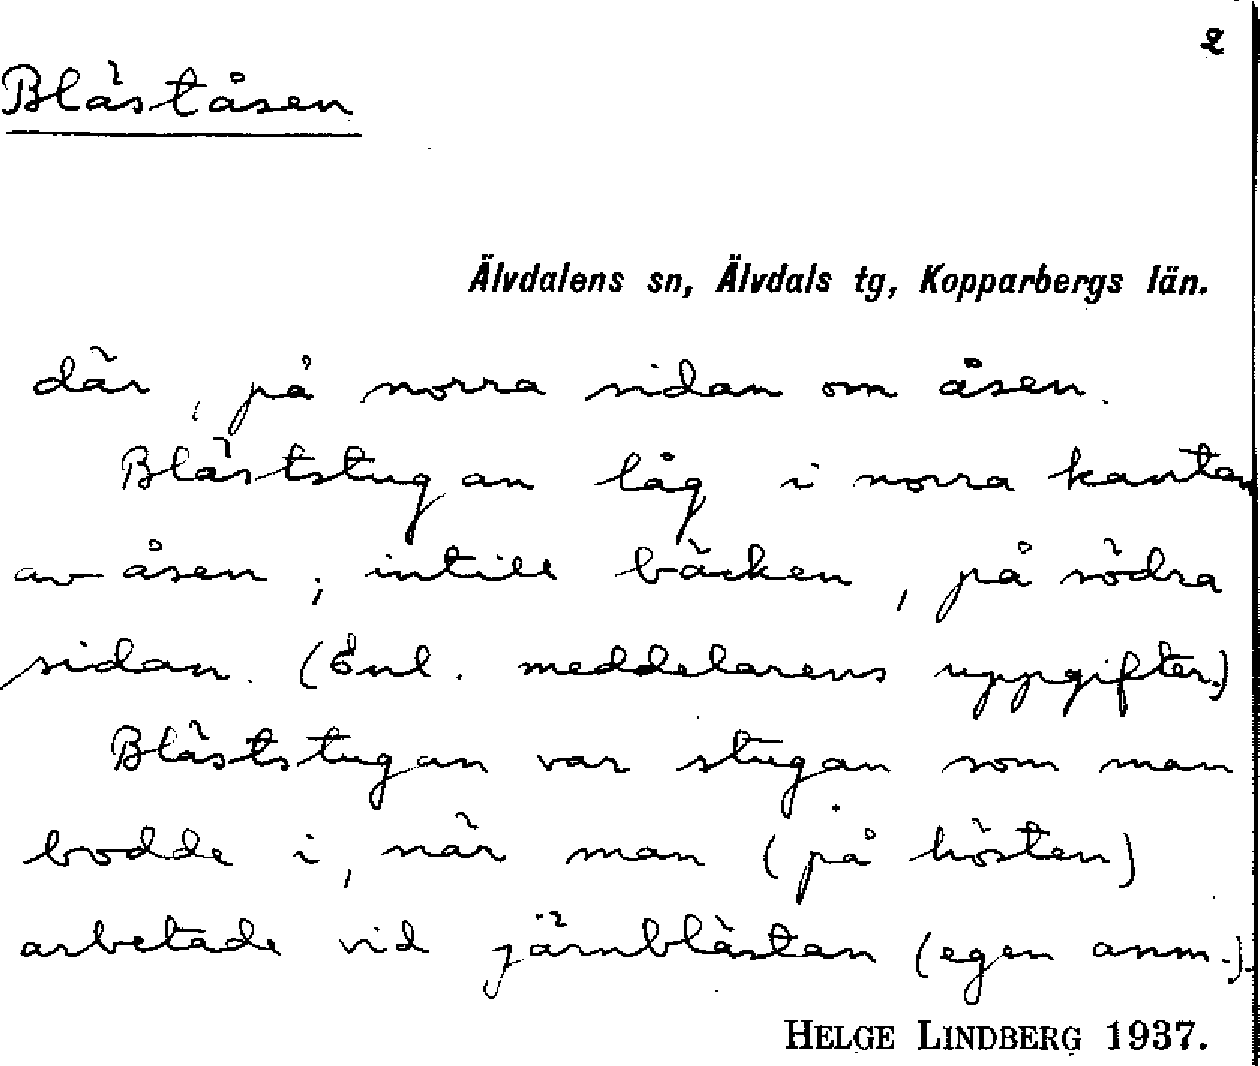 2
Bläståsen
Älvdalens sn, Älvdals tg, Kopparbergs län.
där, på norra sidan om åsen.
Bläststugan låg i norra kanten
av åsen, intill bäcken, på södra
sidan. (Enl. meddelarens uppgifter.)
Bläststugan var stugan som man
bodde i, när man (på hösten)
arbetade vid järnblästan (egen anm.).
HELGE LINDBERG 1937.